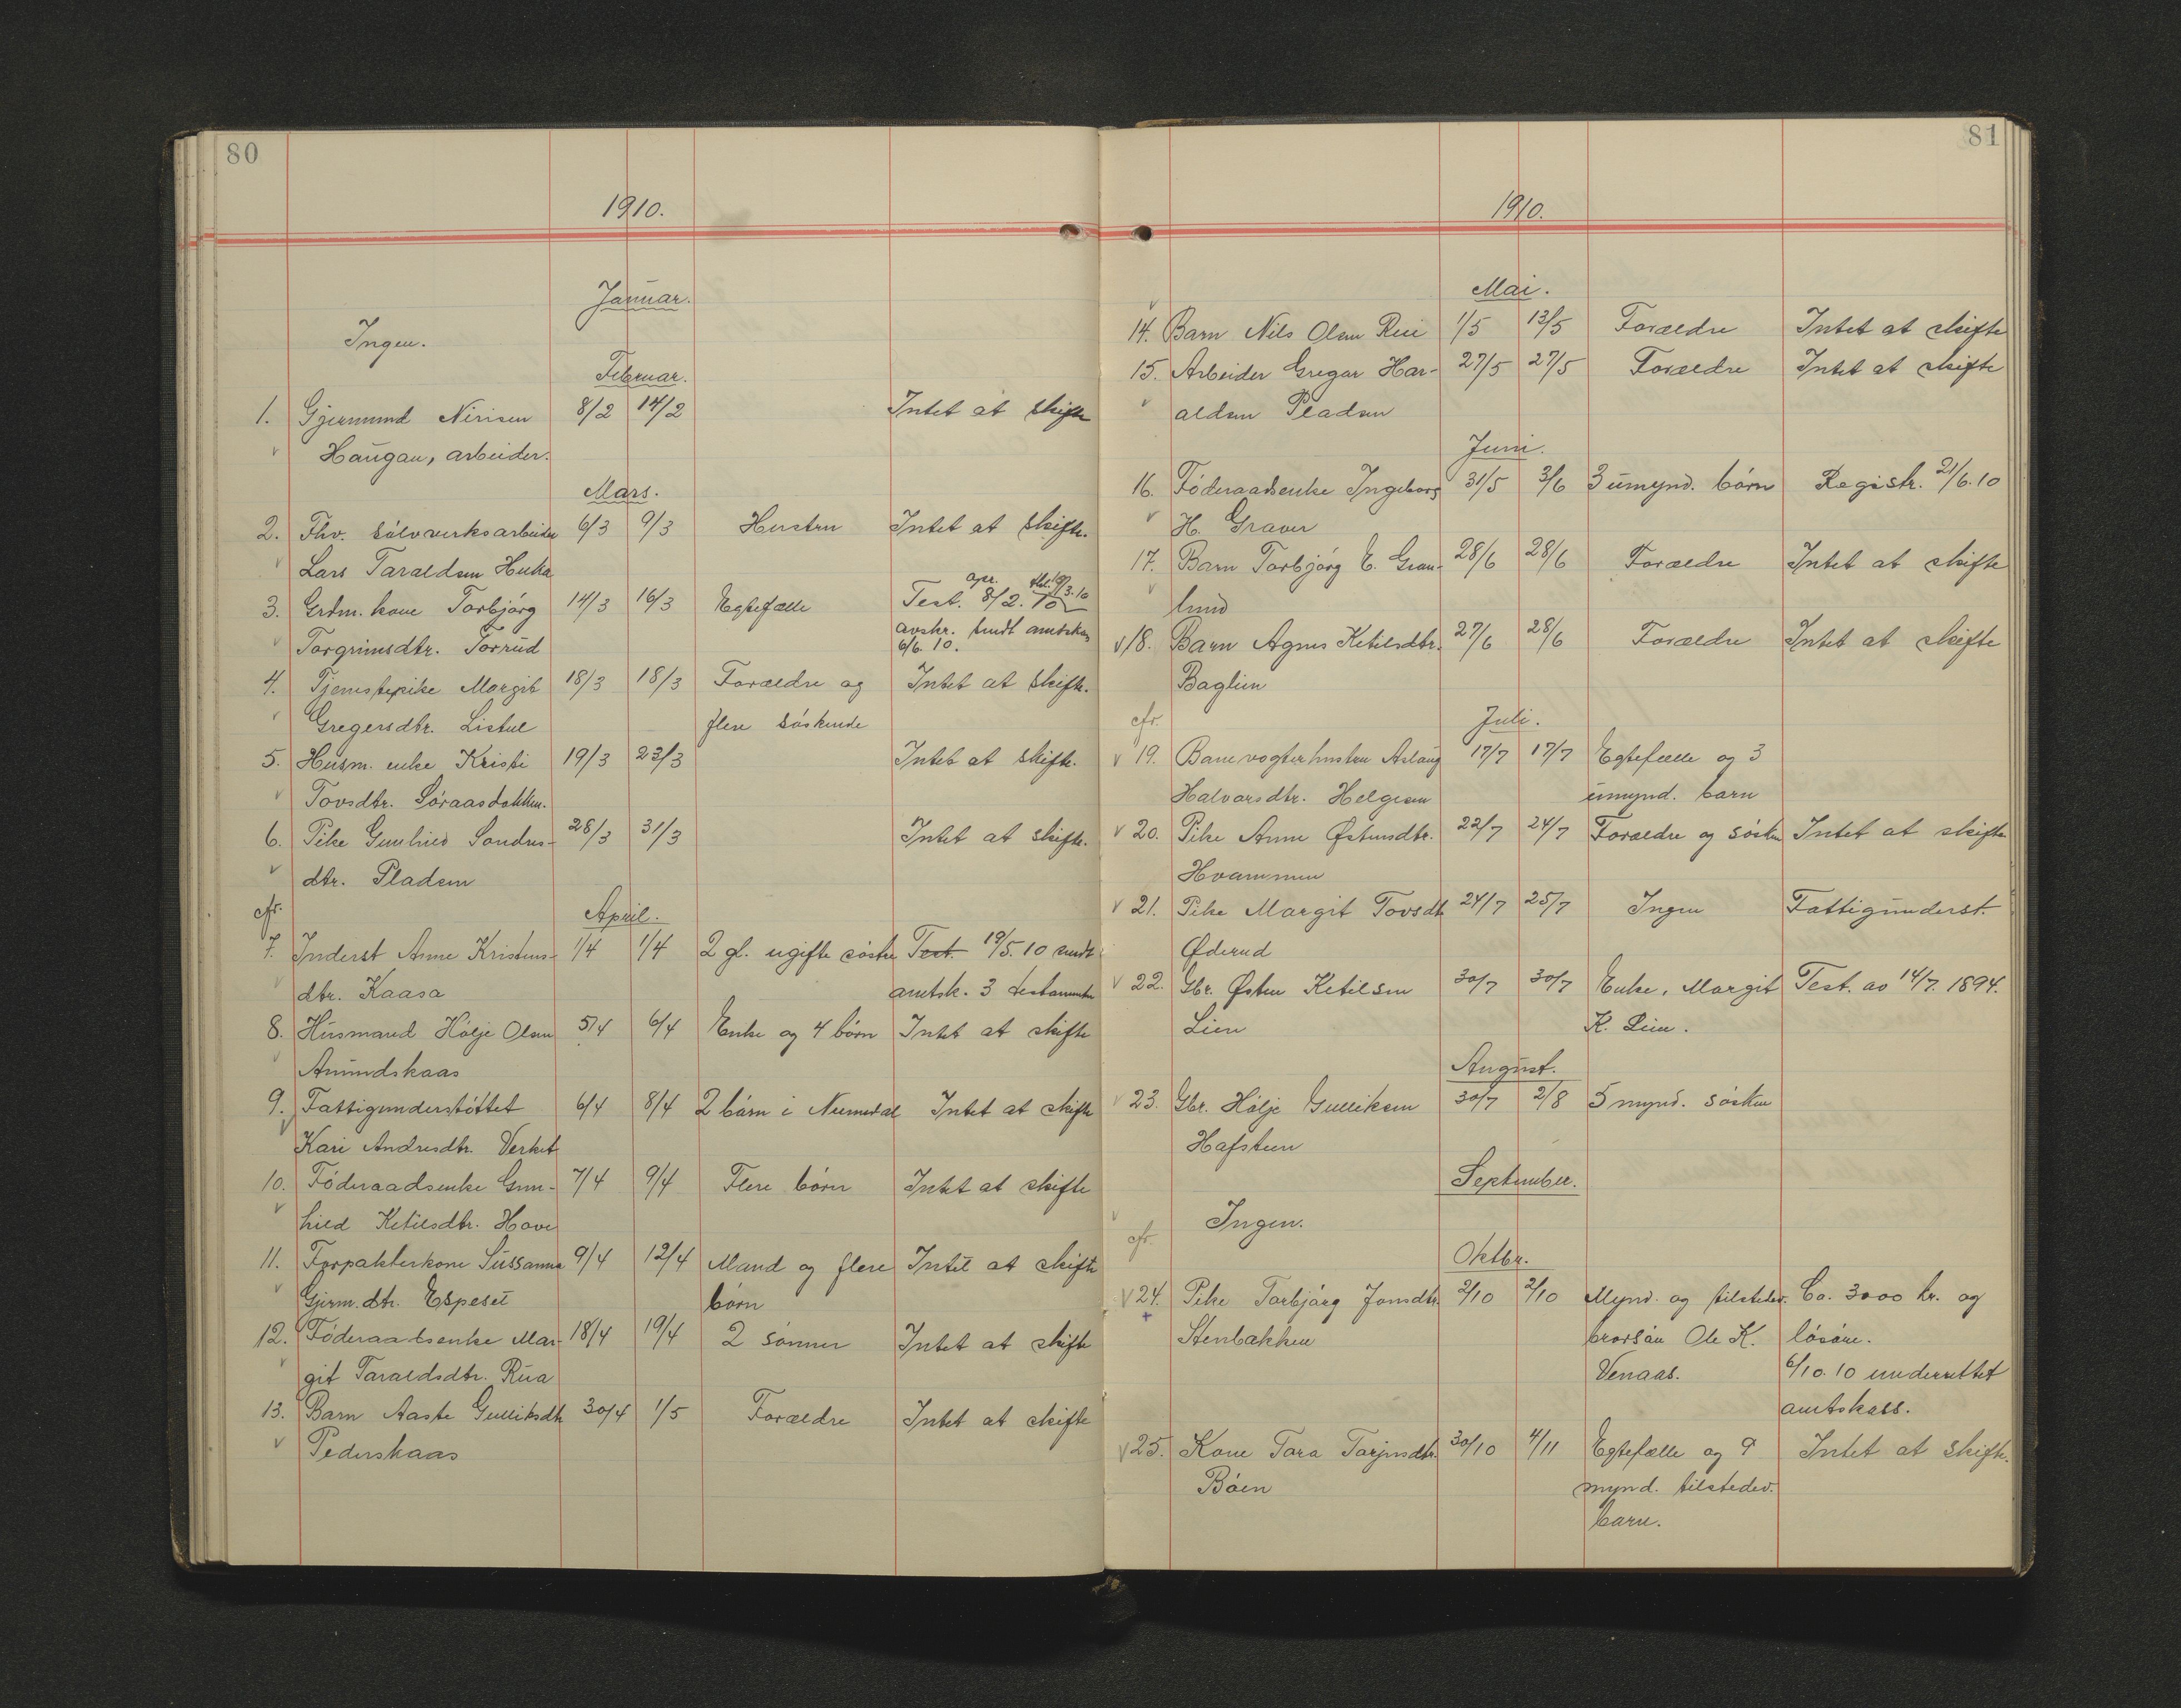 80
1910.
Januar.
Ingen.
Februar.
1. Gjermund Nirisen 8/2 14/2 Intet at skifte
Haugan, arbeider.
Mars.
2. Fhv. sölvverksarbeider 6/3 9/3 Hustru Intet at skifte.
Lars Taraldsen Huka
apr.
3. Grdm. kone Torbjörg 14/3 16/3 Egtefælle Test. 8/2. 10
Torgrimsdtr. Torrud avskr. sendt amtskas
6/6. 10.
4. Tjenestepike Margit 18/3 18/3 Forældre og Intet at skifte.
Gregersdtr. Listul flere söskende
5. Husm. enke Kristi 19/3 23/3 Intet at skifte.
Tovsdtr. Söraasdokken.
6. Pike Gunhild Sondres- 28/3 31/3 Intet at skifte.
dtr. Pladsen
cfr.
April.
7. Inderst Anne Kristens- 1/4 1/4 2 gl. ugifte söstre Test. 19/5. 10 sendt
dtr. Kaasa amtsk. 3 testamenter
8. Husmand Hölje Olsen 5/4 6/4 Enke og 4 börn Intet at skifte
Amundskaas
9. Fattigunderstöttet 6/4 8/4 2 börn i Numedal Intet at skifte
Kari Andresdtr. Verket
10. Föderaadsenke Gun- 7/4 9/4 Flere börn Intet at skifte
hild Ketilsdtr. Hove
11. Forpakterkone Sussanna 9/4 12/4 Mand og flere Intet at skifte
Gjerm.dtr. Espeset börn
12. Föderaadsenke Mar- 18/4 19/4 2 sönner Intet at skifte
git Taraldsdtr. Rua
13. Barn Aaste Gulliksdtr 30/4 1/5 Forældre Intet at skifte
Pederskaas
81
1910.
Mai.
14. Barn Nils Olsen Rui 1/5 13/5 Forældre Intet at skifte
15. Arbeider Gregar Har- 27/5 27/5 Forældre Intet at skifte
aldsen Pladsen
Juni.
16. Föderaadsenke Ingeborg 31/5 3/6 3 umynd. börn Registr. 21/6.10
H. Graver
17. Barn Torbjörg E. Gran- 28/6 28/6 Forældre Intet at skifte
lund
18. Barn Agnes Ketilsdtr. 27/6 28/6 Forældre Intet at skifte
Baglien
cfr.
Juli.
19. Banevogterhustru Aslaug 17/7 17/7 Egtefælle og 3
Halvorsdtr. Helgesen umynd. barn
20. Pike Anne Østensdtr. 22/7 24/7 Forældre og sösken Intet at skifte
Hvammen
21. Pike Margit Tovsdtr 24/7 25/7 Ingen Fattigunderst.
Øderud
22. Gbr. Østen Ketilsen 30/7 30/7 Enke, Margit Test. av 14/7. 1894.
Lien K. Lien.
August.
23. Gbr. Hölje Gulliksen 30/7 2/8 5 mynd. sösken
Hafsteen
September.
Ingen.
cfr.
Oktbr.
24. Pike Torbjörg Jonsdtr. 2/10 2/10 Mynd. og tilstedev. Ca. 3000 kr. og
Stenbakken brorsön Ole K. lösöre.
Venaas. 6/10.10 underrettet
amtskass.
25. Kone Tora Torjusdtr. 30/10 4/11 Egtefælle og 9 Intet at skifte.
Böen mynd. tilstedev.
barn.